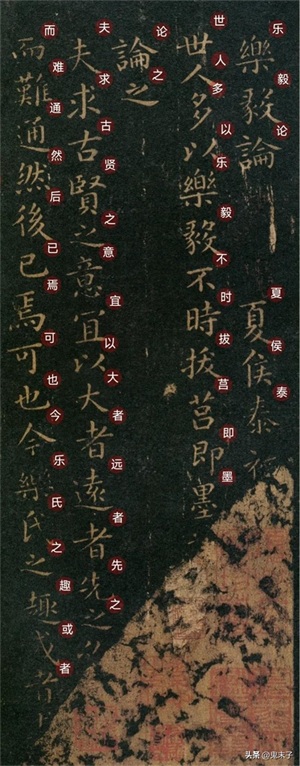 乐毅论 夏侯泰
樂毅論 夏侯泰
世人多以乐毅不时拔莒即墨
世人多以樂毅不時拔莒即墨
论之
論之
夫求古贤之意宜以大者远者先之
夫求古賢之意宜以大者遠者先之
而难通然后已焉可也今乐氏之趣或者
而難通然後已焉可也今樂氏之趣或
头条